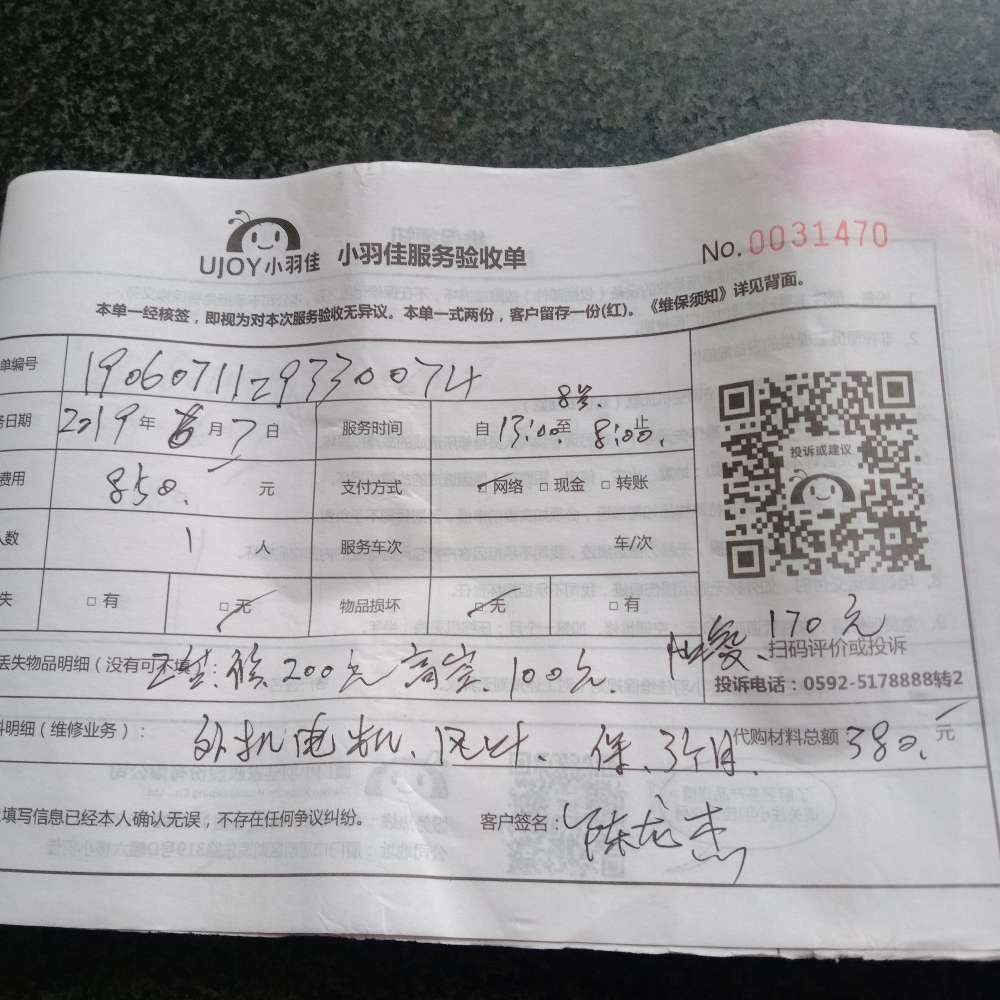 UJOY小羽佳 小羽佳服务验收单 No.0031470
本单一经核签，即视为对本次服务验收无异议。本单一式两份，客户留存一份(红)。《维保须知》详见背面。
单编号 1906071129330074
务日期 2019年6月7日 服务时间 自13:00至8号8:00止
费用 850. 元 支付方式 网络 现金 转账
人数 1 人 服务车次 车/次
失 有 无 物品损坏 无 有
投诉或建议
170元
扫码评价或投诉
投诉电话：0592-5178888转2
丢失物品明细（没有可不填 200元 高空.100元.
料明细（维修业务）： 外机电机、风叶. 保.3个月. 代购材料总额 380. 元
填写信息已经本人确认无误，不存在任何争议纠纷。 客户签名：陈龙杰